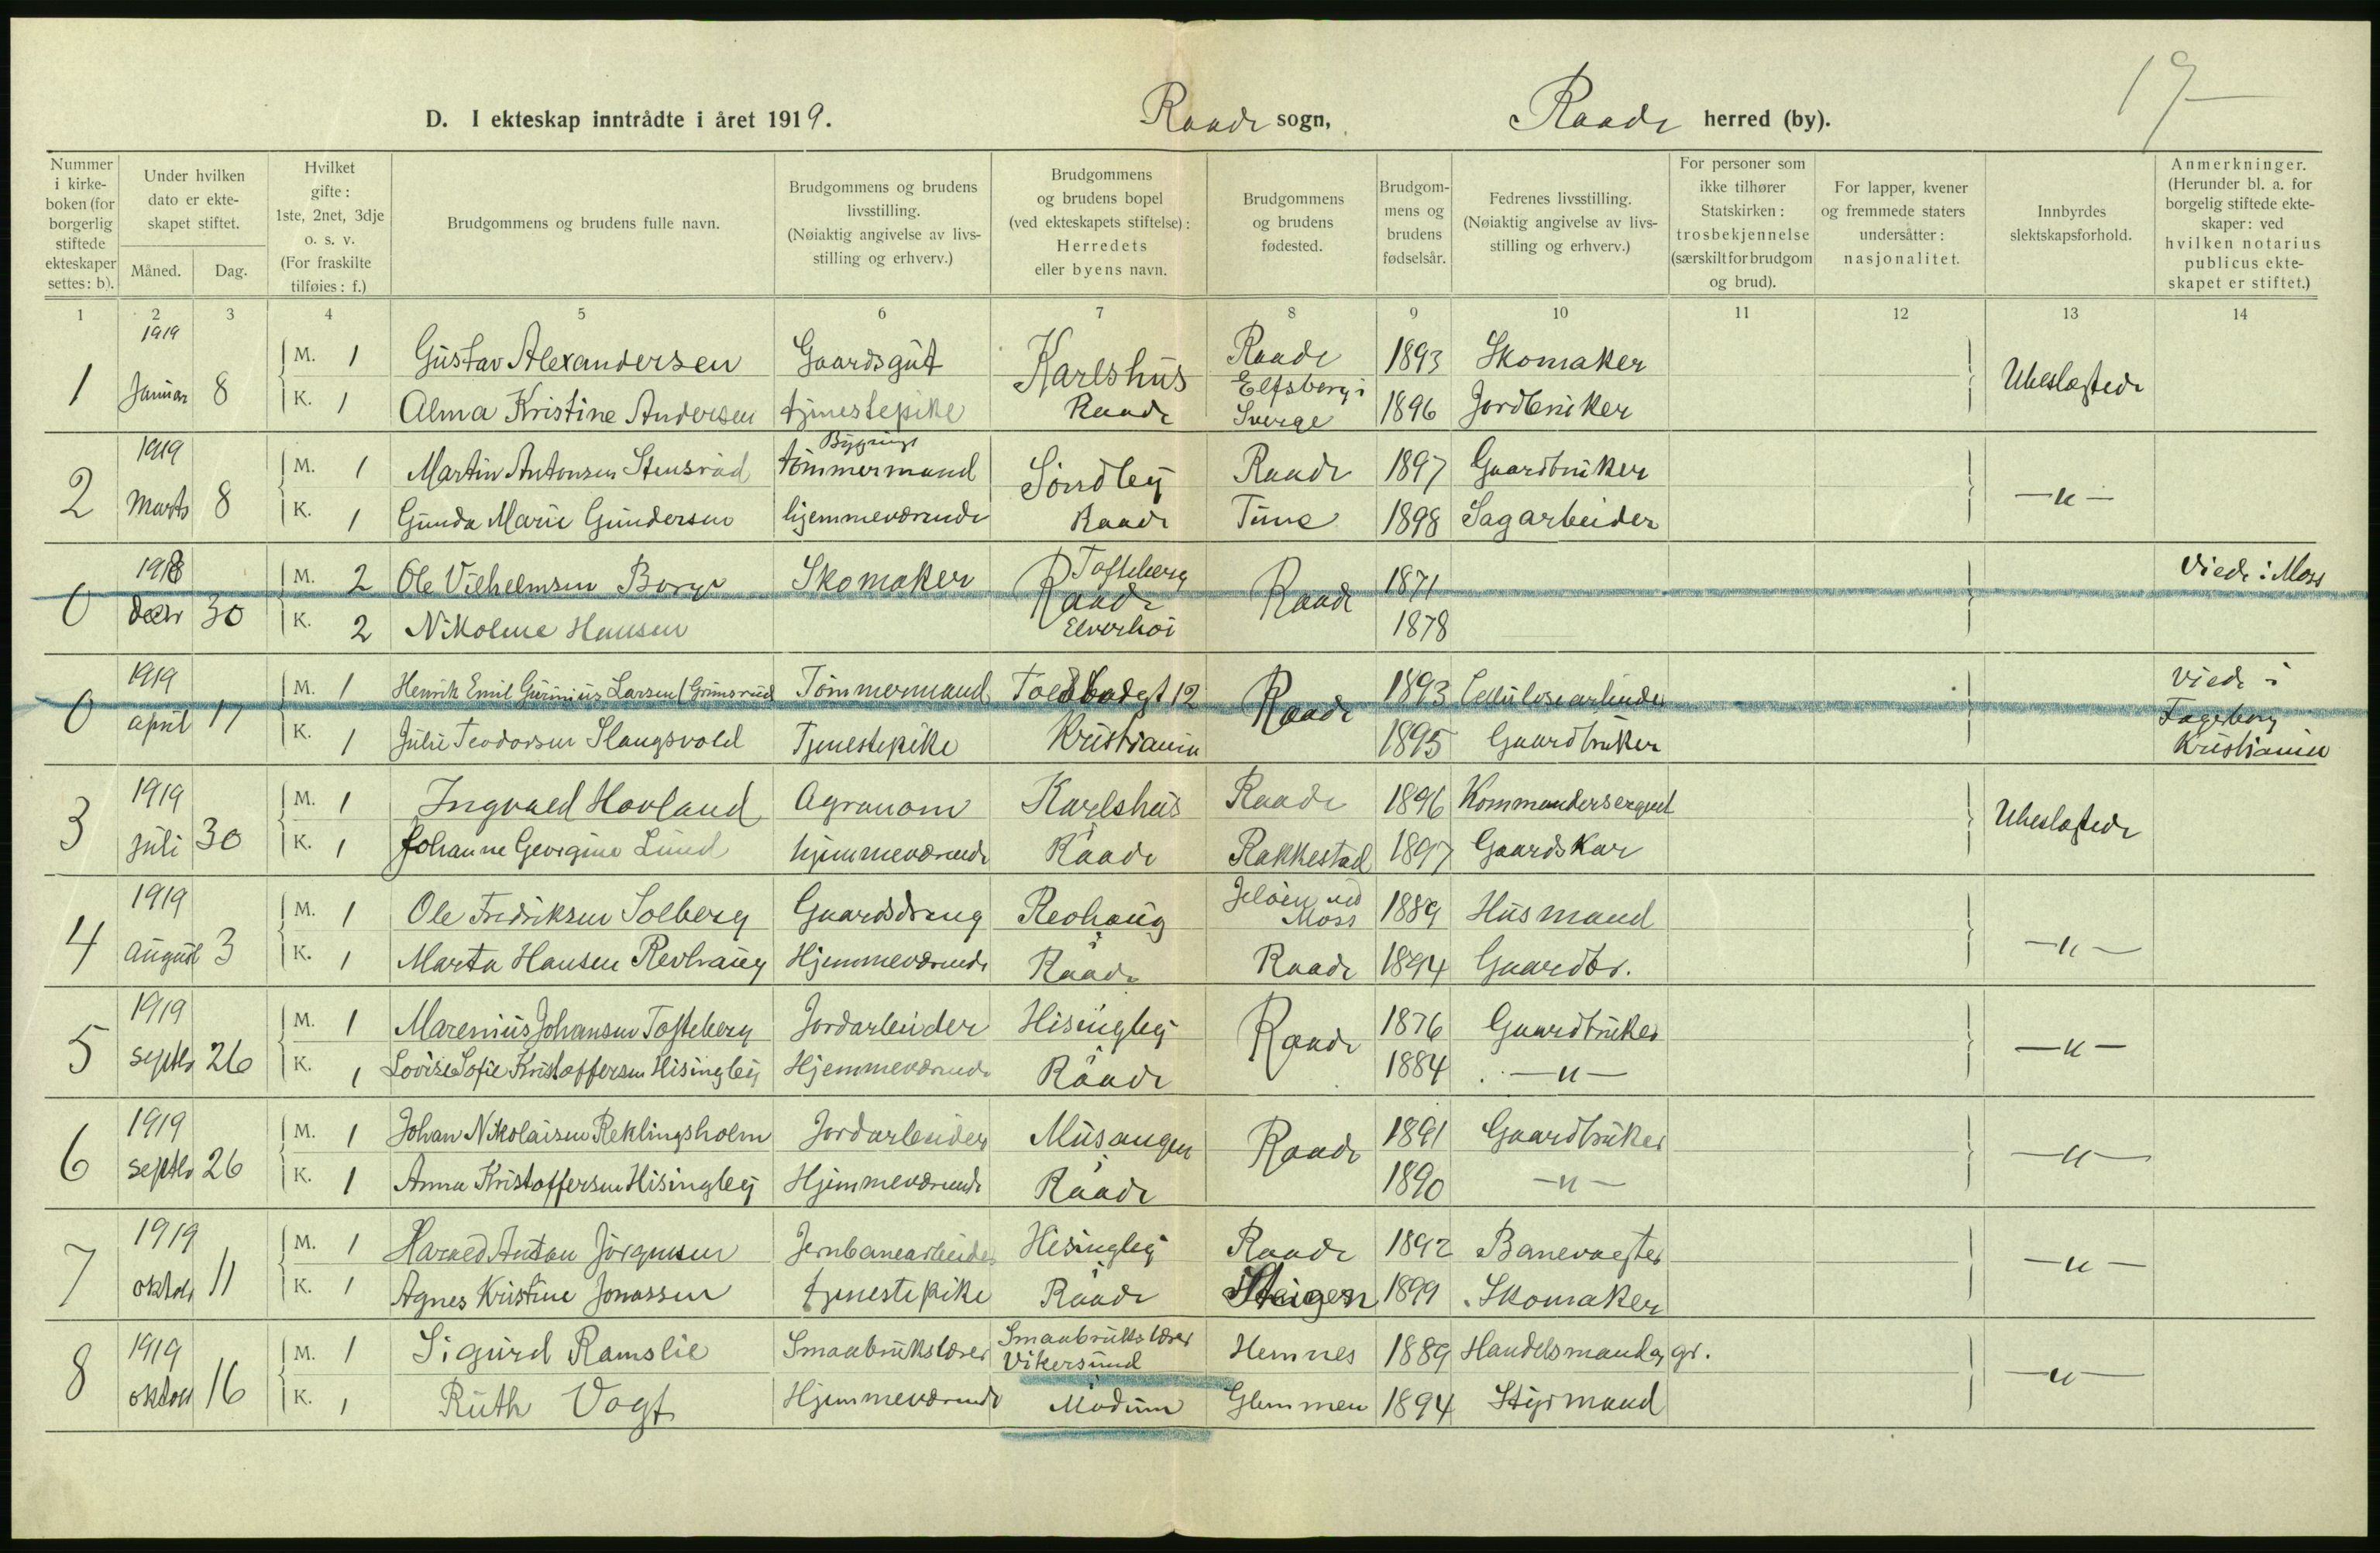 19
D. I ekteskap inntrådte i året 1919. Raade sogn, Raade herred (by).
Nummer i kirke- boken (for borgerlig stiftede ekteskaper settes: b).
Under hvilken dato er ekte- skapet stiftet.
Måned. Dag.
Hvilket gifte: 1ste, 2net, 3dje o. s. v. (For fraskilte tilføies: f.)
Brudgommens og brudens fulle navn.
Brudgommens og brudens livsstilling. (Nøiaktig angivelse av livs- stilling og erhverv.)
Brudgommens og brudens bopel (ved ekteskapets stiftelse): Herredets eller byens navn.
Brudgommens og brudens fødested.
Brudgom- mens og brudens fødselsår.
Fedrenes livsstilling. (Nøiaktig angivelse av livs- stilling og erhverv.)
For personer som ikke tilhører Statskirken: trosbekjennelse (særskilt for brudgom og brud).
For lapper, kvener og fremmede staters undersåtter: nasjonalitet.
Innbyrdes slektskapsforhold.
Anmerkninger. (Herunder bl. a. for borgelig stiftede ekte- skaper: ved hvilken notarius publicus ekte- skapet er stiftet.)
1 2 3 4 5 6 7 8 9 10 11 12 13 14
1919
M. 1 Gustav Alexandersen Gaardsgut Karlshus Raade 1893 Skomaker
1 Januar 8 Ubeslægtede
K. 1 Alma Kristine Andersen tjenestepike Raade Elfsborg i Sverge 1896 Jordbruker
1919
M. 1 Martin Antonsen Stensrød Bygnings tömmermand Sondbey Raade 1897 Gaardbruker
2 Marts 8 — " —
K. 1 Gunda Marie Gundersen hjemmeværende Raade Tune 1898 Sagarbeider
1918
M. 2 Ole Vilhelmsen Borge Skomaker Tofteberg Raade 1871 Viede i Moss
0 decbr 30
K. 2 Nikoline Hansen Elverhöi 1878
1919
M. 1 Henrik Emil Gurinius Larsen (Grimsrud Tömmermand Toldbodgt 12 Raade 1893 Cellulosearbeider viede i
0 april 17 Fagerborg
K. 1 Julie Teodorsen Slangsvold Tjenestepike Kristiania 1895 Gaardbruker Kristiania
1919
M. 1 Ingvald Hovland Agronom Karlshus Raade 1896 Kommandersergeant
3 juli 30 Ubeslægtede
K. 1 Johanne Georgine Lund hjemmeværende Raade Rakkestad 1897 Gaardskar
1919
M. 1 Ole Fredriksen Solberg Gaardsdreng Revhaug Jelöen ved Moss 1889 Husmand
4 august 3 — " —
K. 1 Marta Hansen Revhaug Hjemmeværende Raade Raade 1894 Gaardbr.
1919
M. 1 Marenius Johansen Tofteberg Jordarbeider Hisingbey Raade 1876 Gaardbruker
5 septbr 26 — " —
K. 1 Lovise Sofie Kristoffersen Hisingbey Hjemmeværende Raade 1884 — " —
1919
M. 1 Johan Nikolaisen Reklingsholm Jordarbeider Musangen Raade 1891 Gaardbruker
6 septbr 26 — " —
K. 1 Anna Kristoffersen Hisingbey Hjemmeværende Raade 1890 — " —
1919
M. 1 Harald Anton Jörgensen Jernbanearbeider Hisingbey Raade 1892 Banevogter
7 oktobr 11 — " —
K. 1 Agnes Kristine Jonassen tjenestepike Raade Steigen 1899 Skomaker
1919
M. 1 Sigurd Ramslie Smaabrukslærer Smaabrukslærer Vikersund Hemnes 1889 Handelsmand og gr.
8 oktobr 16 — " —
K. 1 Ruth Vogt Hjemmeværende Modum Glemmen 1894 Styrmand